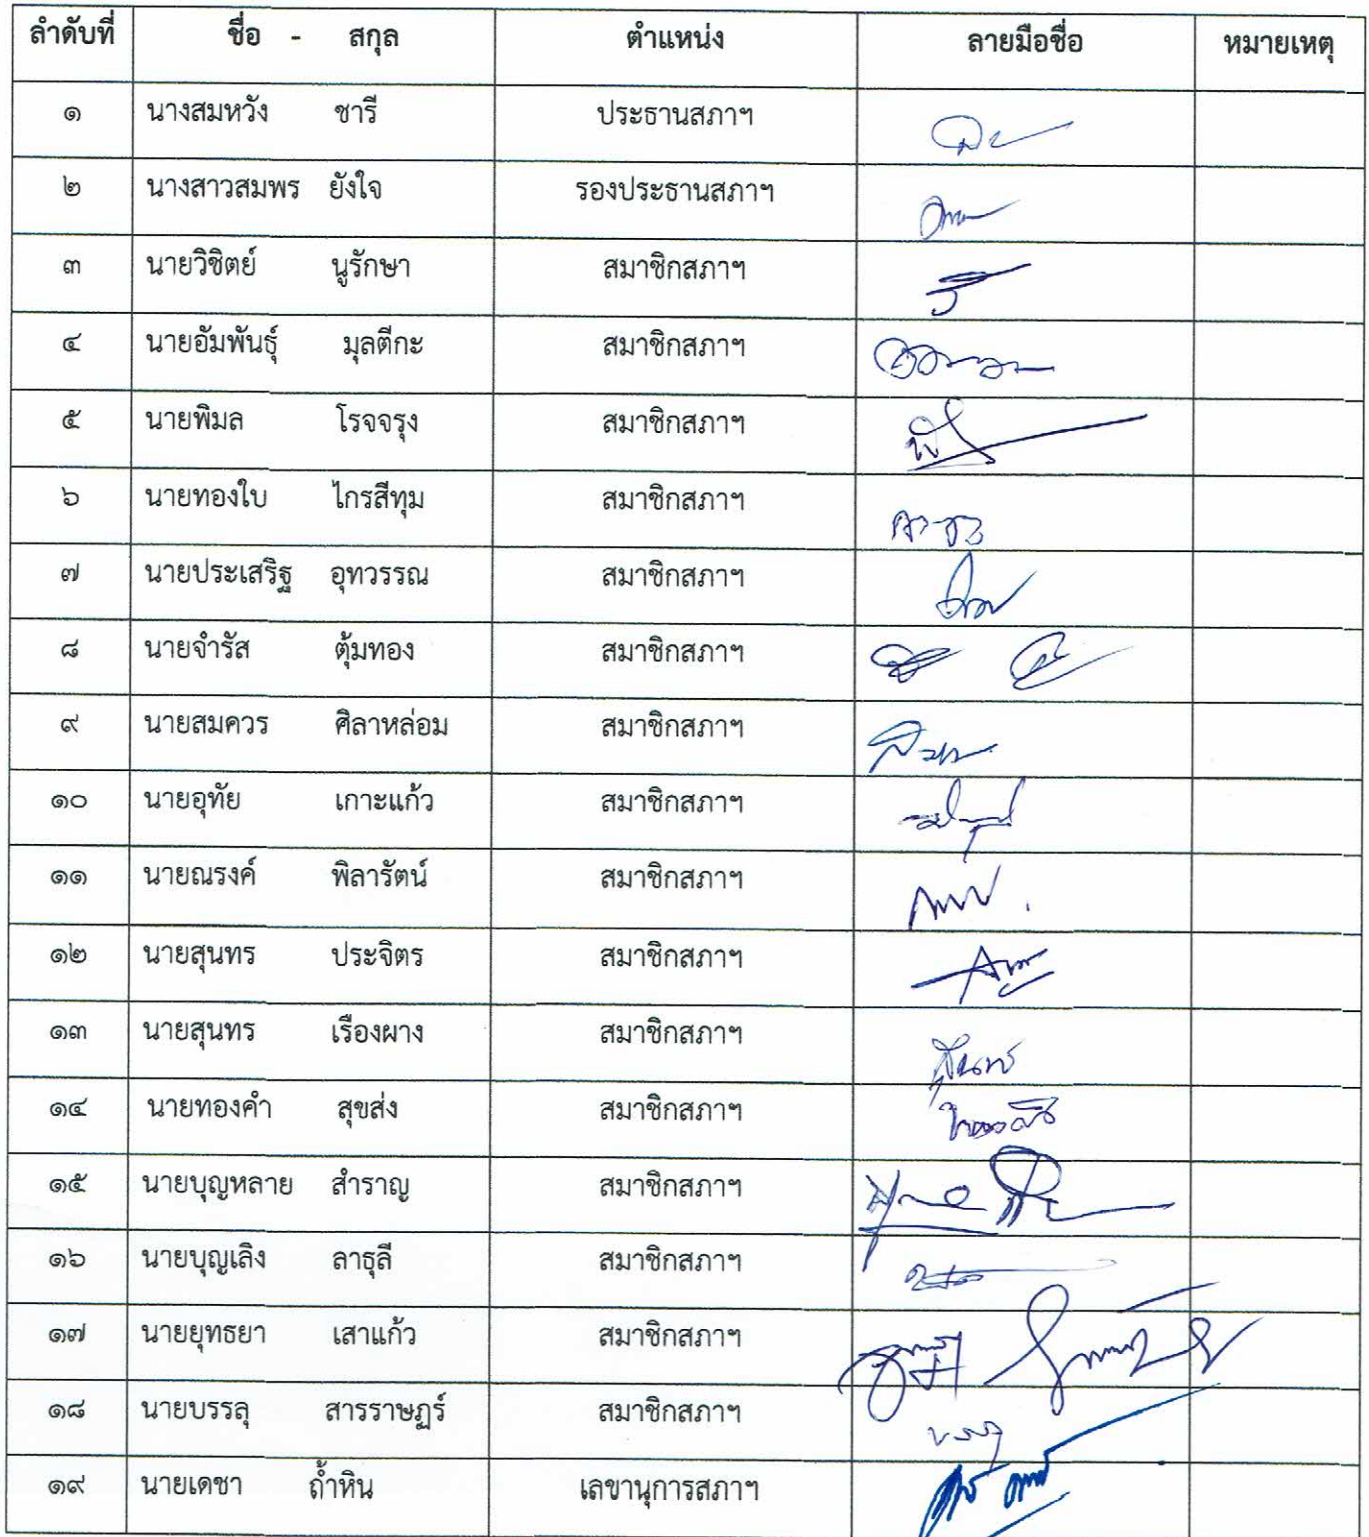 ลำดับที่ ชื่อ - สกุล ตำแหน่ง ลายมือชื่อ หมายเหตุ
๑ นางสมหวัง ชารี ประธานสภาฯ
๒ นางสาวสมพร ยังใจ รองประธานสภาฯ
๓ นายวิชิตย์ นูรักษา สมาชิกสภาฯ
๔ นายอัมพันธุ์ มุลตีกะ สมาชิกสภาฯ
๕ นายพิมล โรจจรุง สมาชิกสภาฯ
๖ นายทองใบ ไกรสีทุม สมาชิกสภาฯ
๗ นายประเสริฐ อุทวรรณ สมาชิกสภาฯ
๘ นายจำรัส ตุ้มทอง สมาชิกสภาฯ
๙ นายสมควร ศิลาหล่อม สมาชิกสภาฯ
๑๐ นายอุทัย เกาะแก้ว สมาชิกสภาฯ
๑๑ นายณรงค์ พิลารัตน์ สมาชิกสภาฯ
๑๒ นายสุนทร ประจิตร สมาชิกสภาฯ
๑๓ นายสุนทร เรืองผาง สมาชิกสภาฯ
๑๔ นายทองคำ สุขส่ง สมาชิกสภาฯ
๑๕ นายบุญหลาย สำราญ สมาชิกสภาฯ
๑๖ นายบุญเลิง ลาธุลี สมาชิกสภาฯ
๑๗ นายยุทธยา เสาแก้ว สมาชิกสภาฯ
๑๘ นายบรรลุ สารราษฎร์ สมาชิกสภาฯ
๑๙ นายเดชา ถ้ำหิน เลขานุการสภาฯ